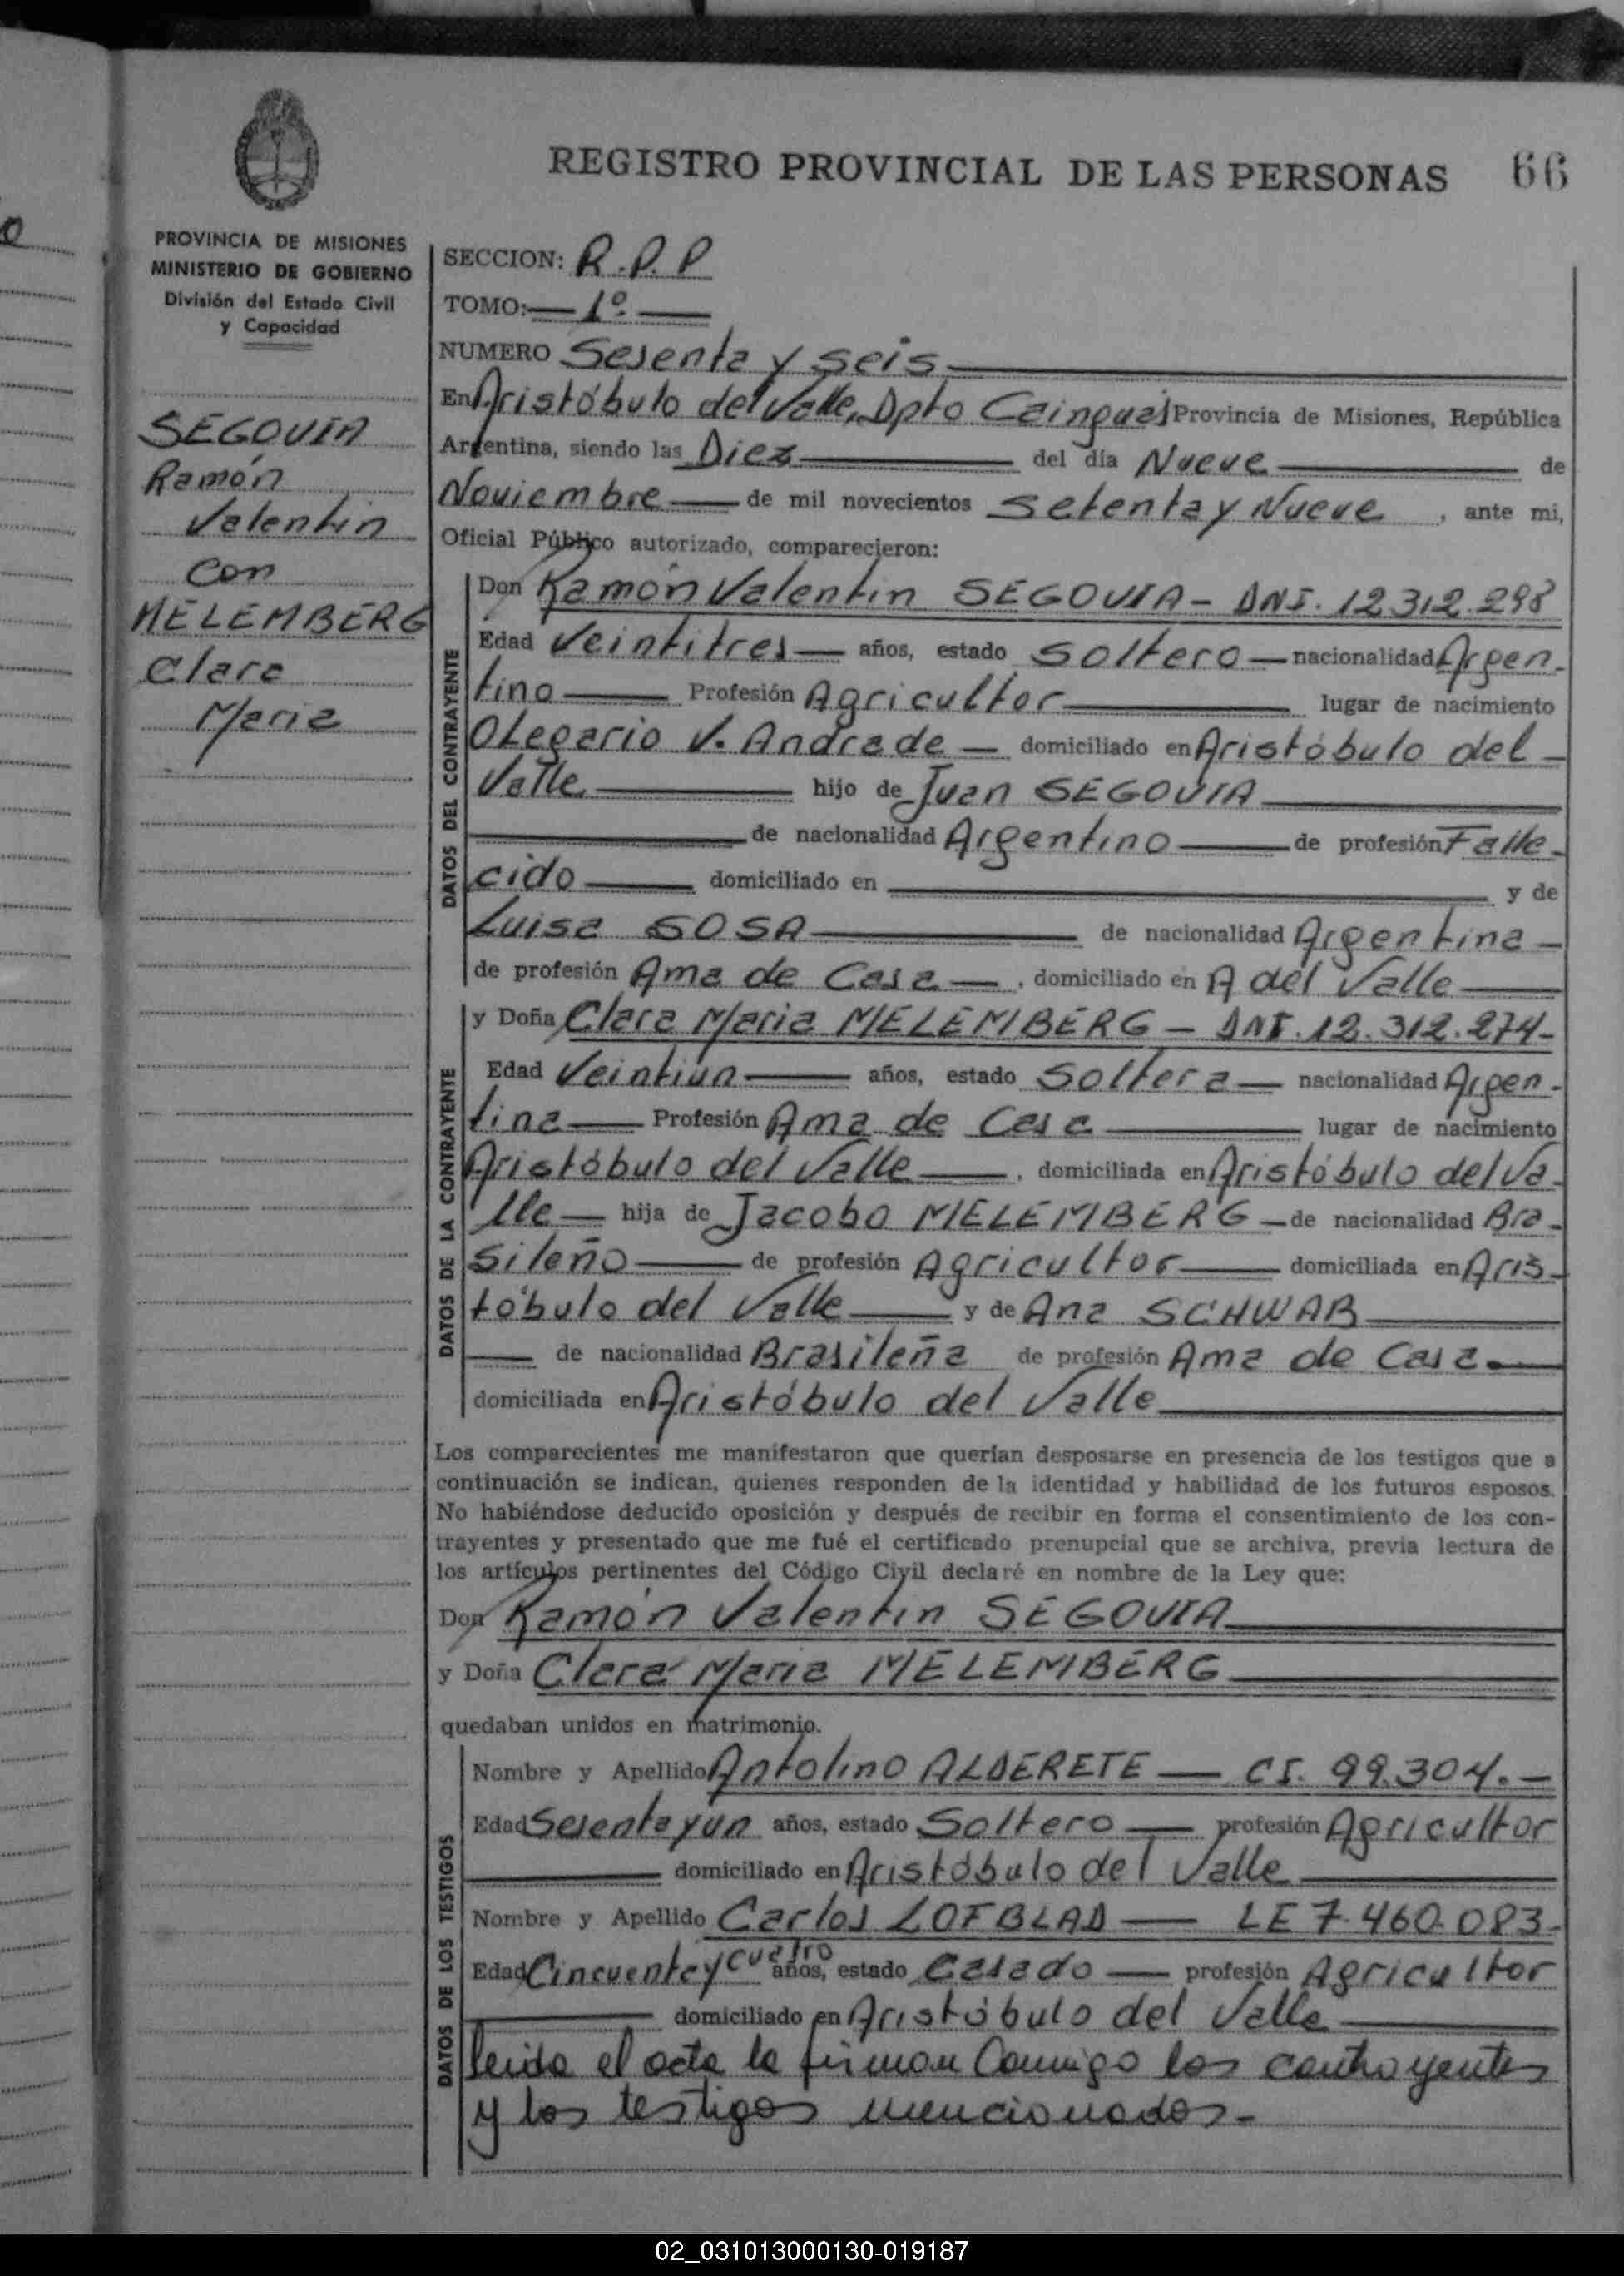 REGISTRO PROVINCIAL DE LAS PERSONAS 66
PROVINCIA DE MISIONES
MINISTERIO DE GOBIERNO
División del Estado Civil
y Capacidad
SEGOVIA
Ramón
Valentin
con
MELEMBERG
Clara
Maria
SECCION: R.P.P
TOMO: 1º
NUMERO Sesenta y seis
En Aristóbulo del Valle, Dpto Cainguas Provincia de Misiones, República
Argentina, siendo las Diez del día Nueve de
Noviembre de mil novecientos Setenta y Nueve, ante mi,
Oficial Público autorizado, comparecieron:
DATOS DEL CONTRAYENTE
Don Ramón Valentin SEGOVIA - DNI. 12.312.298
Edad Veintitres años, estado Soltero nacionalidad Argen-
tino Profesión Agricultor lugar de nacimiento
Olegario V. Andrade domiciliado en Aristóbulo del
Valle hijo de Juan SEGOVIA
de nacionalidad Argentino de profesión Falle-
cido domiciliado en y de
Luisa SOSA de nacionalidad Argentina
de profesión Ama de Casa, domiciliado en A del Valle
DATOS DE LA CONTRAYENTE
y Doña Clara Maria MELEMBERG - DNI. 12.312.274-
Edad Veintiún años, estado Soltera nacionalidad Argen-
tina Profesión Ama de Casa lugar de nacimiento
Aristóbulo del Valle, domiciliada en Aristóbulo del Va-
lle hija de Jacobo MELEMBERG de nacionalidad Bra-
sileño de profesión Agricultor domiciliada en Aris-
tóbulo del Valle y de Ana SCHWAB
de nacionalidad Brasileña de profesión Ama de Casa
domiciliada en Aristóbulo del Valle
Los comparecientes me manifestaron que querían desposarse en presencia de los testigos que a
continuación se indican, quienes responden de la identidad y habilidad de los futuros esposos.
No habiéndose deducido oposición y después de recibir en forma el consentimiento de los con-
trayentes y presentado que me fué el certificado prenupcial que se archiva, previa lectura de
los artículos pertinentes del Código Civil declaré en nombre de la Ley que:
Don Ramón Valentin SEGOVIA
y Doña Clara Maria MELEMBERG
quedaban unidos en matrimonio.
DATOS DE LOS TESTIGOS
Nombre y Apellido Antolino ALDERETE - CI. 99.304.-
Edad Sesenta y un años, estado Soltero profesión Agricultor
domiciliado en Aristóbulo del Valle
Nombre y Apellido Carlos LOFBLAD - LE 7.460.083-
Edad Cincuenta y cuatro años, estado Casado profesión Agricultor
domiciliado en Aristóbulo del Valle
Leida el acta la firman Conmigo los contrayentes
y los testigos mencionados.-
02_031013000130-019187